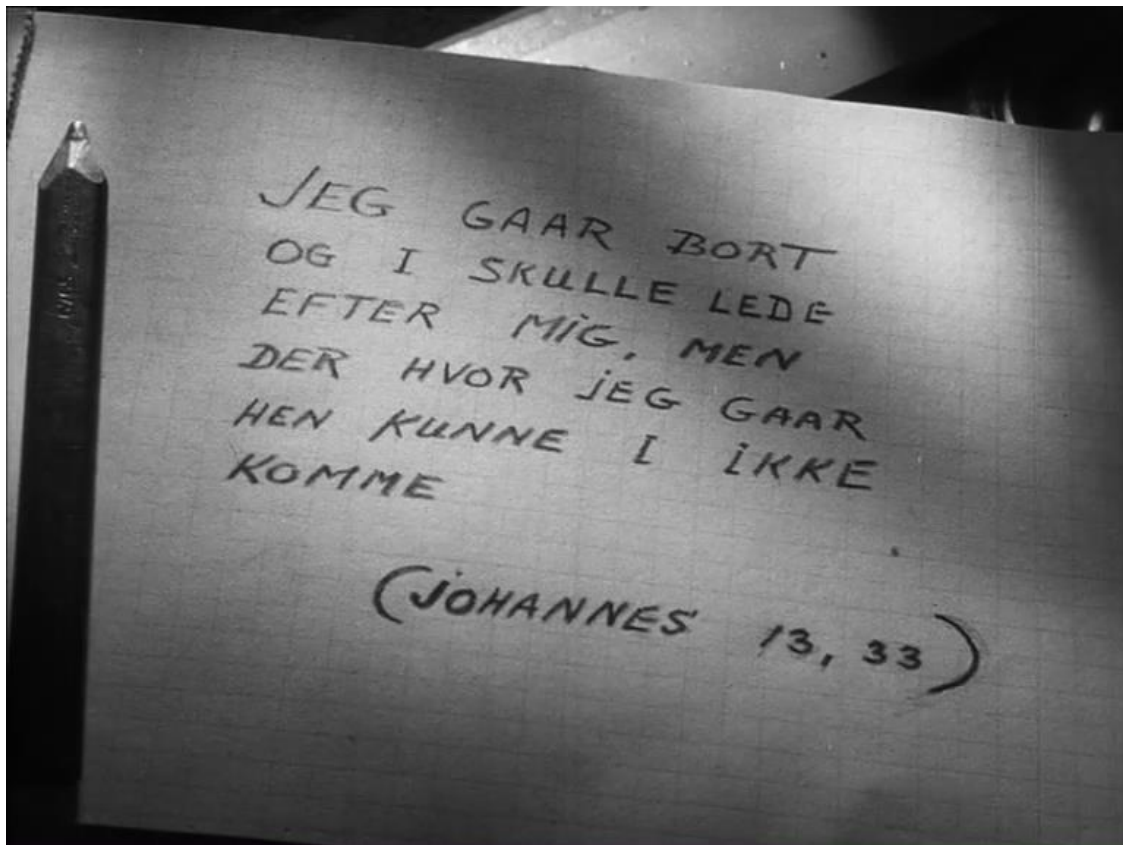 JEG GAAR BORT
OG I SKULLE LEDE
EFTER MIG, MEN
DER HVOR JEG GAAR
HEN KUNNE I IKKE
KOMME
(JOHANNES 13, 33)